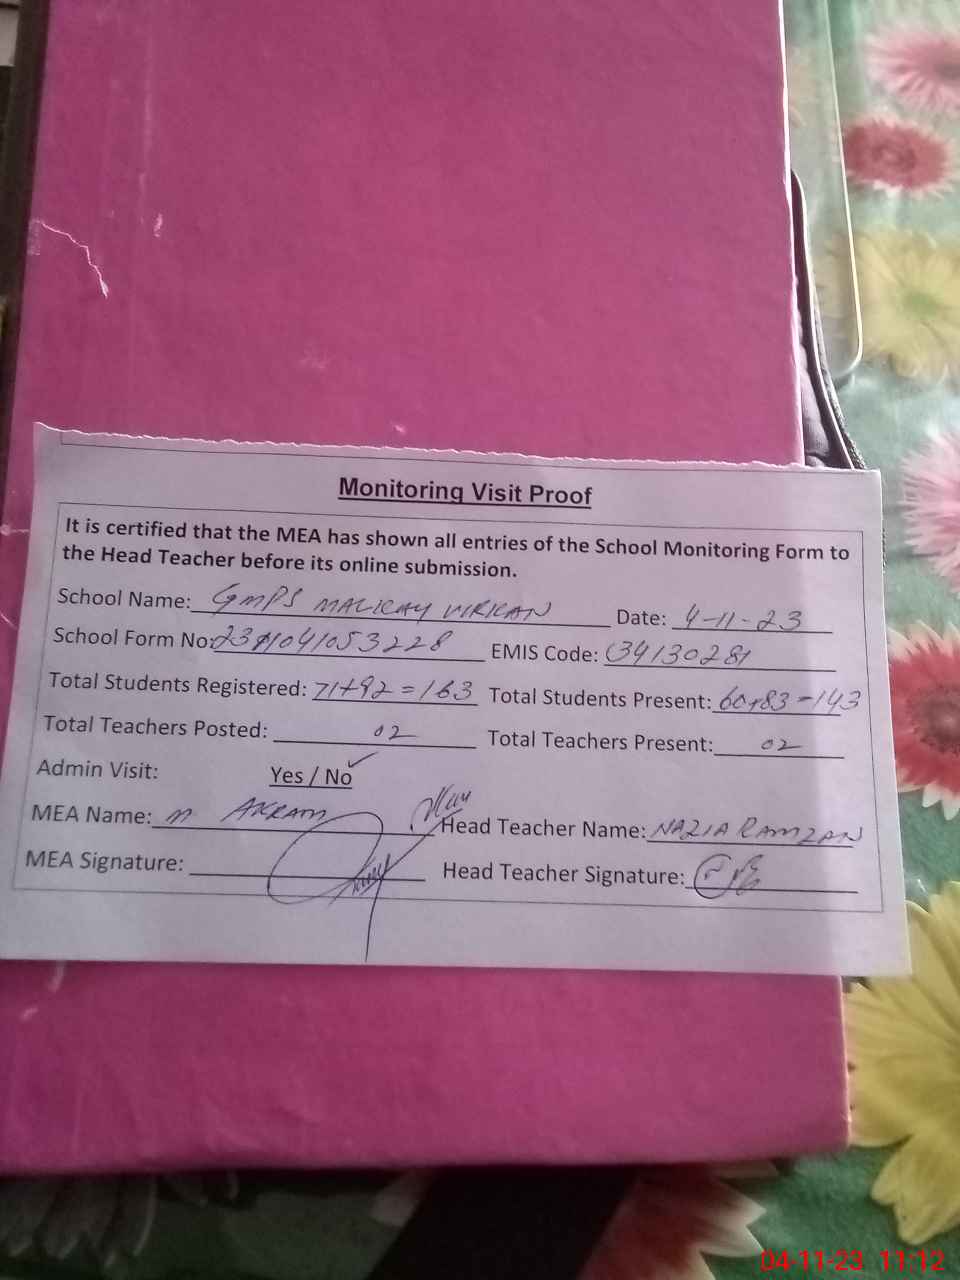 Monitoring Visit Proof
It is certified that the MEA has shown all entries of the School Monitoring Form to
the Head Teacher before its online submission.
School Name: GMPS MALIKAY VIRKAN Date: 4-11-23
School Form No: 2311041053228 EMIS Code: 34130281
Total Students Registered: 71+92=163 Total Students Present: 60+83=143
Total Teachers Posted: 02 Total Teachers Present: 02
Admin Visit: Yes / No ✓
MEA Name: M AKRAM Head Teacher Name: NAZIA RAMZAN
MEA Signature: Head Teacher Signature:
04-11-23 11:12